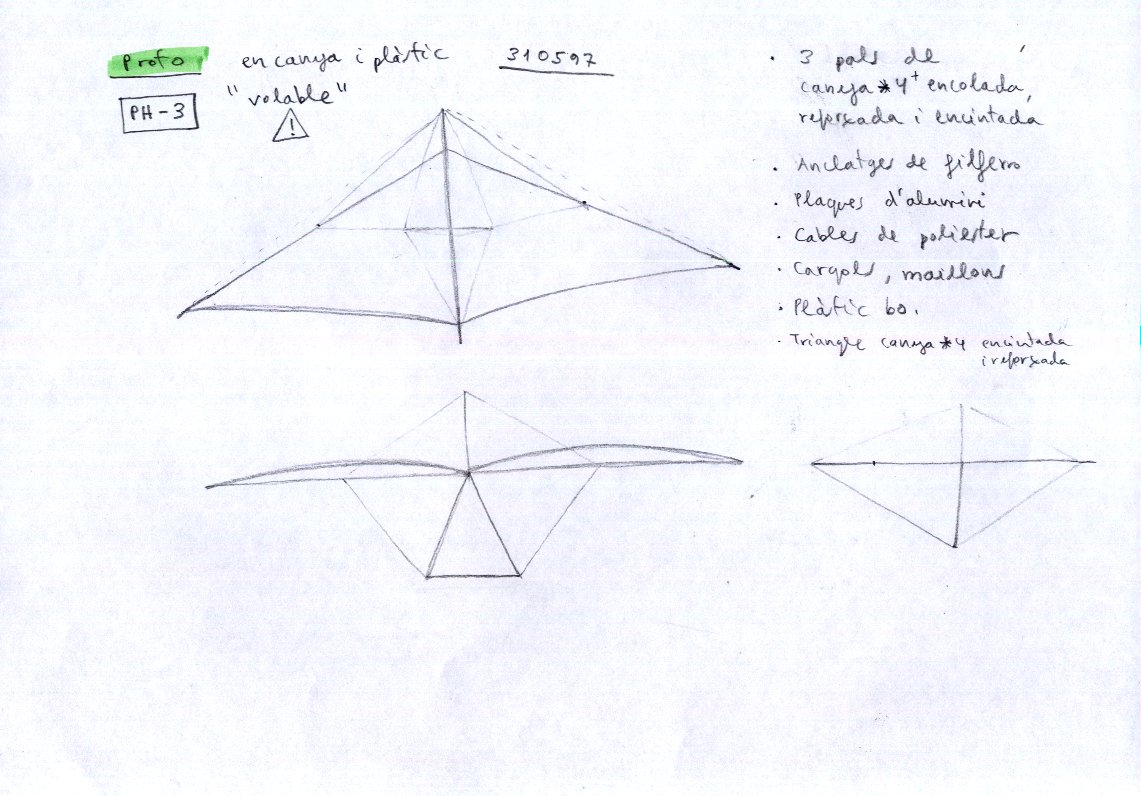 Proto en canya i plàstic 310597
PH-3 "volable"
!
· 3 pals de
canya *4+ encolada,
reforçada i encintada
· Anclatges de filferro
· Plaques d'alumini
· Cables de poliester
· Cargols, maillons
· Plàstic bo.
· Triangle canya *4 encintada
i reforçada